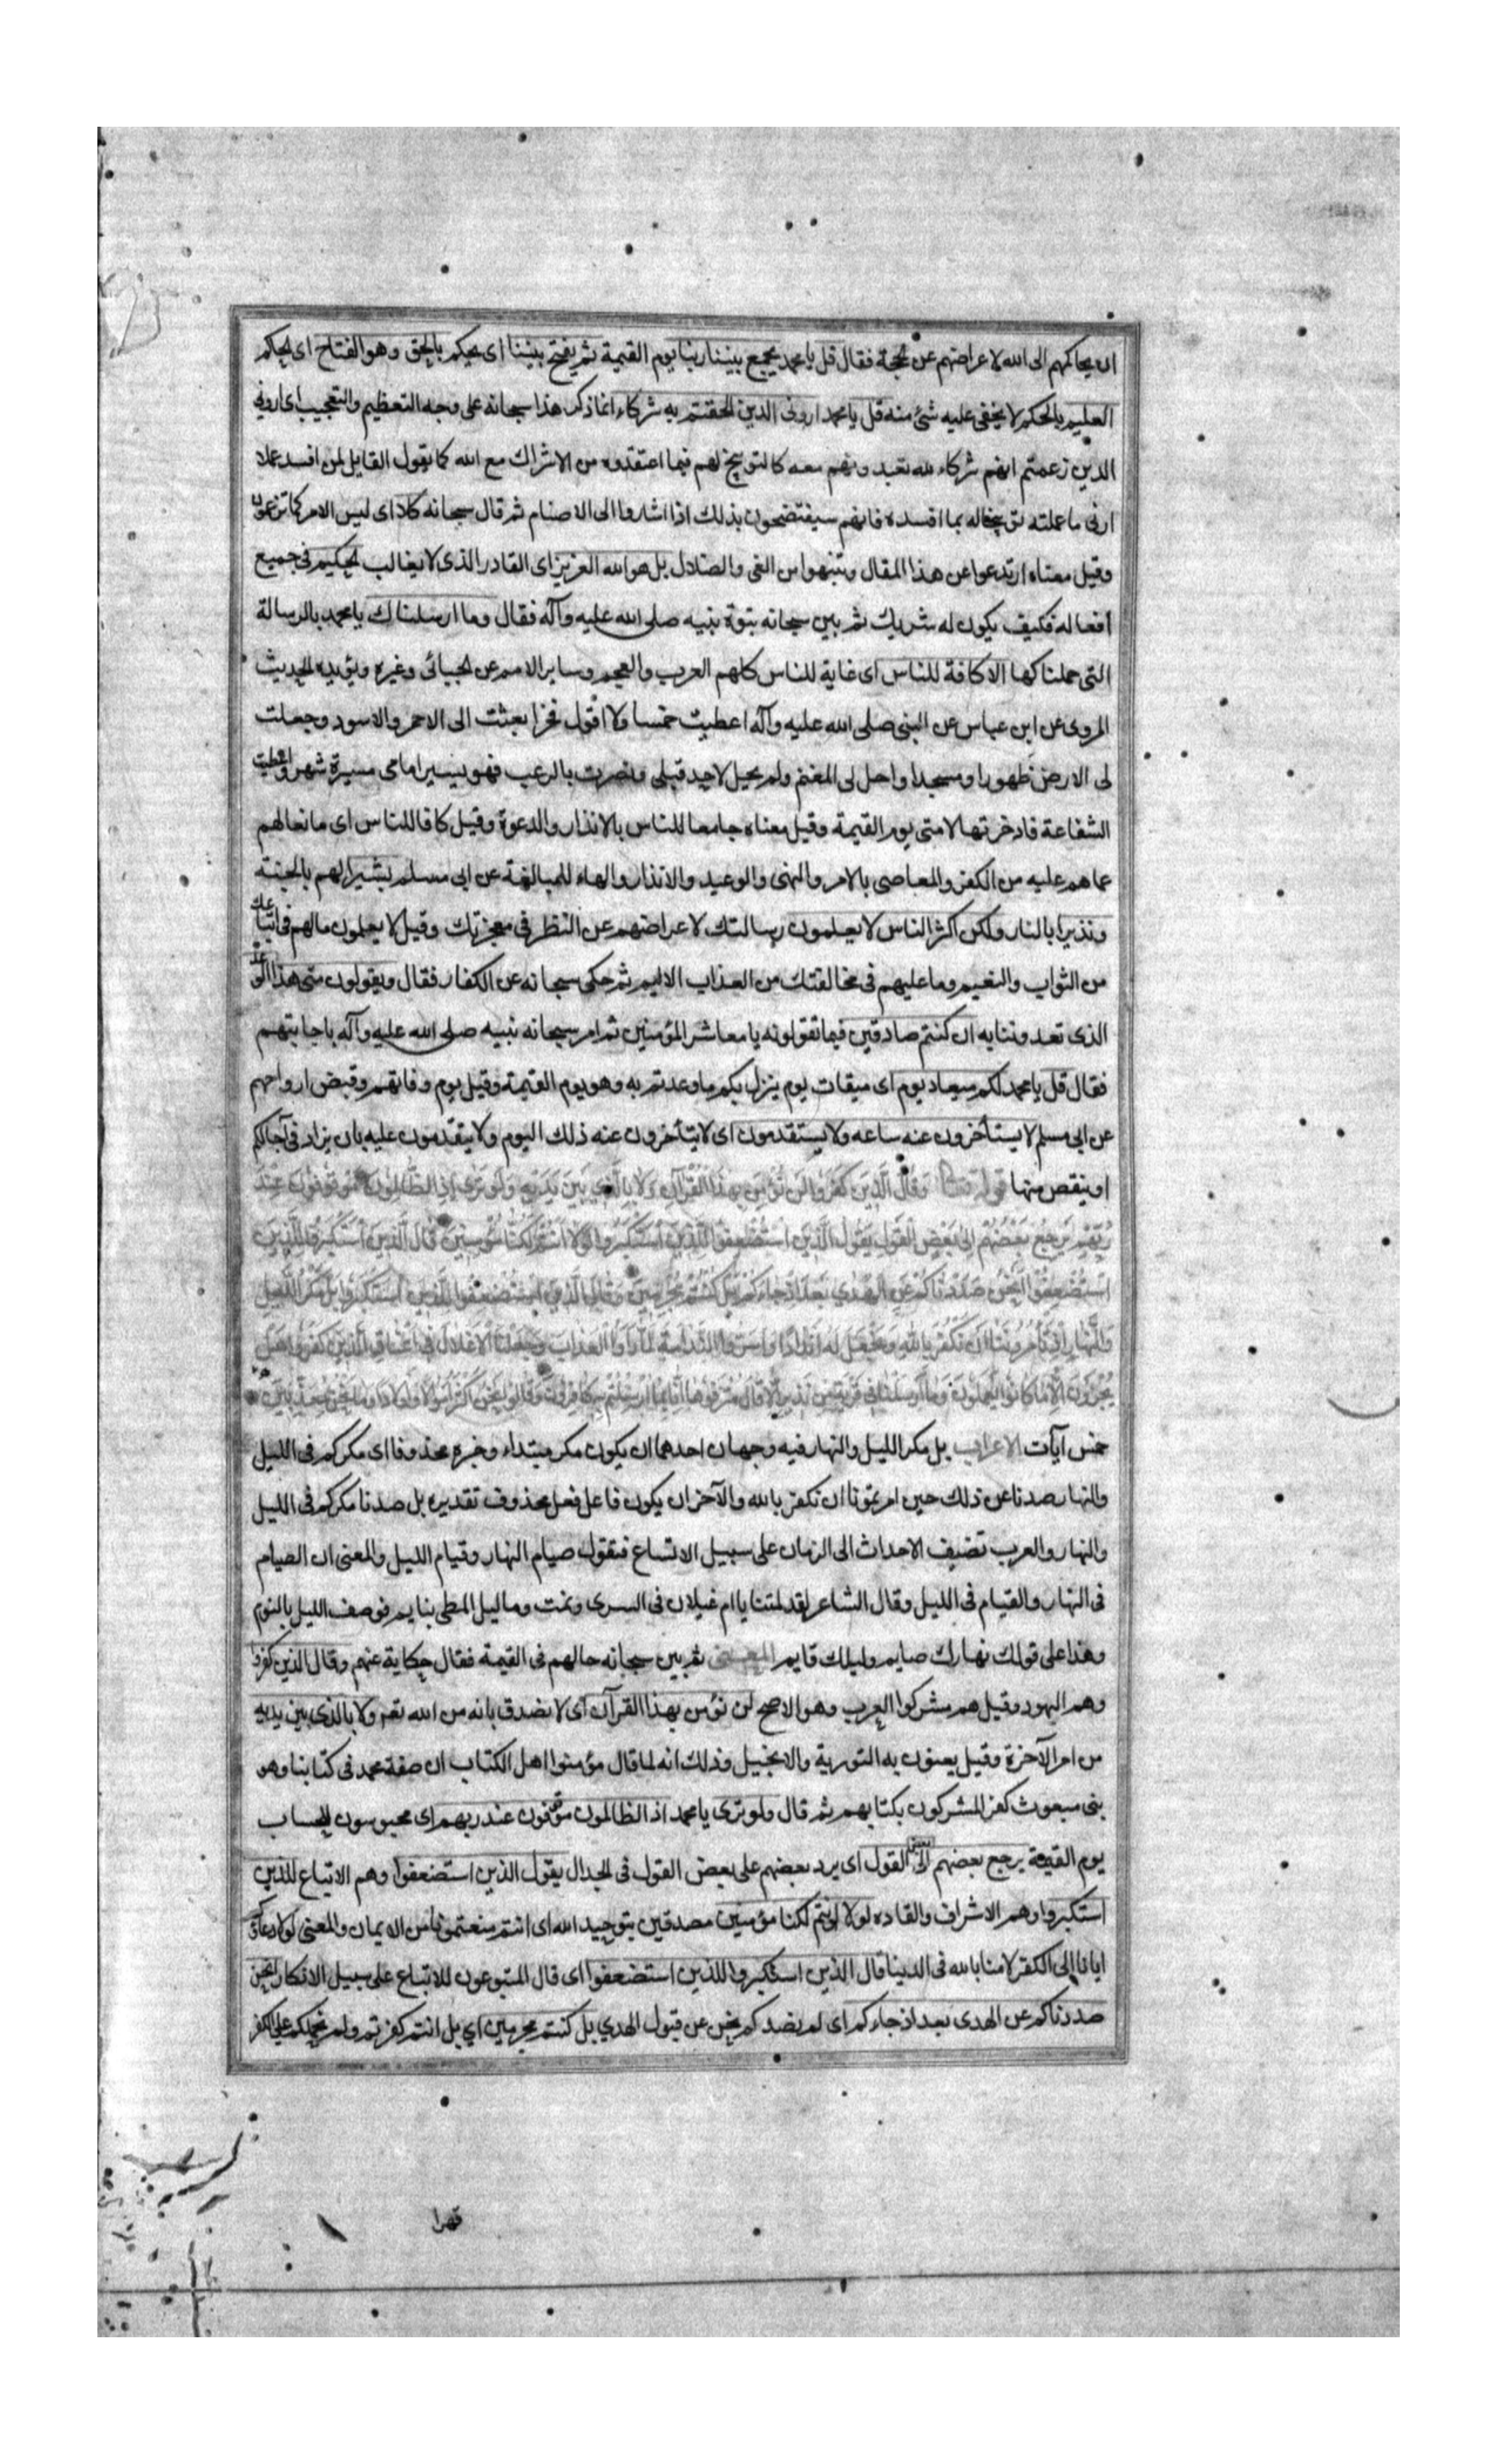 ان يحاكمهم الى الله لاعراضهم عن لحجة فقال قل يا محمد يجمع بيننا ربنا يوم القيمة ثم يفتح بيننا اى يحكم بالحق وهو الفتاح اى لحاكم
العليم بالحكم لا يخفى عليه شئ منه قل يا محمد ارونى الذين الحقتم به شركاء انما ذكر هذا سبحانه على وجه التعظيم والتعجيب اى ارونى
الذين زعمتم انهم شركاء لله تعبدونهم معه كالتوبيخ لهم فيما اعتقدوه من الاشراك مع الله كما يقول القايل لمن افسد عملا
ارنى ما عملته توبيخا له بما افسده فانهم سيفتضحون بذلك اذا اشاروا الى الاصنام ثم قال سبحانه كلا اى ليس الامر كما تزعمون
وقيل معناه ارتدعوا عن هذا المقال وتنبهوا من الغى والضلال بل هو الله العزيز اى القادر الذى لا يغالب لحكيم فى جميع
أفعاله فكيف يكون له شريك ثم بين سبحانه نبوة نبيه صلى الله عليه وآله فقال وما ارسلناك يا محمد بالرسالة
التى حملناكها الا كافة للناس اى غاية للناس كلهم العرب والعجم وساير الامم عن لجبائى وغيره ويؤيده لحديث
المروى عن ابن عباس عن النبى صلى الله عليه وآله اعطيت خمسا ولا اقول فخرا بعثت الى الاحمر والاسود وجعلت
لى الارض ظهورا ومسجدا واحل لى المغنم ولم يحل لاحد قبلى ونصرت بالرعب فهو يسير امامى مسيرة شهر واعطيت
الشفاعة فادخرتها لامتى يوم القيمة وقيل معناه جامعا للناس بالانذار والدعوة وقيل كافا للناس اى مانعا لهم
عما هم عليه من الكفر والمعاصى بالامر والنهى والوعيد والانذار والهاء للمبالغة عن ابى مسلم بشيرا لهم بالجنة
ونذيرا بالنار ولكن اكثر الناس لا يعلمون رسالتك لاعراضهم عن النظر فى معجزتك وقيل لا يعلمون ما لهم فى اتباعك
من الثواب والنعيم وما عليهم فى مخالفتك من العذاب الاليم ثم حكى سبحانه عن الكفار فقال ويقولون متى هذا الوعد
الذى تعدوننا به ان كنتم صادقين فيما تقولونه يا معاشر المؤمنين ثم امر سبحانه نبيه صلى الله عليه وآله باجابتهم
فقال قل يا محمد لكم ميعاد يوم اى ميقات يوم ينزل بكم ما وعدتم به وهو يوم القيمة وقيل يوم وفاتهم وقبض ارواحهم
عن ابى مسلم لا يستأخرون عنه ساعه ولا يستقدمون اى لا يتأخرون عنه ذلك اليوم ولا يتقدمون عليه بان يزاد فى آجالكم
او ينقص منها قوله تعالى وَقَالَ الَّذِينَ كَفَرُوا لَن نُؤْمِنَ بِهذَا القُرْآنِ وَلَا بِالَّذِي بَيْنَ يَدَيْهِ وَلَوْ تَرَى إِذِ الظَّالِمُونَ مَوْقُوفُونَ عِنْدَ
رَبِّهِمْ يَرْجِعُ بَعْضُهُمْ إِلَىٰ بَعْضٍ القَوْلَ يَقُولُ الَّذِينَ اسْتُضْعِفُوا لِلَّذِينَ اسْتَكْبَرُوا لَوْلَا اَنْتُمْ لَكُنَّا مُؤْمِنِينَ قَالَ الَّذِينَ اسْتَكْبَرُوا لِلَّذِينَ
اسْتُضْعِفُوا اَنَحْنُ صَدَدْنَاكُمْ عَنِ الْهُدَى بَعْدَ اِذْ جَاءَكُمْ بَلْ كُنْتُمْ مُجْرِمِينَ وَقَالَ الَّذِينَ اسْتُضْعِفُوا لِلَّذِينَ اسْتَكْبَرُوا بَلْ مَكْرُ اللَّيْلِ
وَالنَّهَارِ اِذْ تَأْمُرُونَنَا اَنْ نَكْفُرَ بِاللهِ وَنَجْعَلَ لَهُ اَنْدَادًا وَاَسَرُّوا النَّدَامَةَ لَمَّا رَاَوُا الْعَذَابَ وَجَعَلْنَا الْاَغْلَالَ فِى اَعْنَاقِ الَّذِينَ كَفَرُوا هَلْ
يُجْزَوْنَ اِلَّا مَا كَانُوا يَعْمَلُونَ وَمَا اَرْسَلْنَا فِى قَرْيَةٍ مِنْ نَذِيرٍ اِلَّا قَالَ مُتْرَفُوهَا اِنَّا بِمَا اُرْسِلْتُمْ بِهِ كَافِرُونَ وَقَالُوا نَحْنُ اَكْثَرُ اَمْوَالًا وَاَوْلَادًا وَمَا نَحْنُ بِمُعَذَّبِينَ
خمس آيات الاعراب بل مكر الليل والنهار فيه وجهان احدهما ان يكون مكر مبتداء وخبره محذوفا اى مكركم فى الليل
والنهار صدنا عن ذلك حين امرتمونا ان نكفر بالله والآخر ان يكون فاعل فعل محذوف تقديره بل صدنا مكركم فى الليل
والنهار والعرب تضيف الاحداث الى الزمان على سبيل الاتساع فتقول صيام النهار وقيام الليل والمعنى ان الصيام
فى النهار والقيام فى الليل وقال الشاعر لقد لمتنا يا ام غيلان فى السرى ونمت وما ليل المطى بنايم فوصف الليل بالنوم
وهذا على قولك نهارك صايم وليلك قايم المعنى ثم بين سبحانه حالهم فى القيمة فقال حكاية عنهم وقال الذين كفروا
وهم اليهود وقيل هم مشركوا العرب وهو الاصح لن نؤمن بهذا القرآن اى لا نصدق بانه من الله تعه ولا بالذى بين يديه
من امر الآخرة وقيل يعنون به التورية والانجيل وذلك انه لما قال مؤمنوا اهل الكتاب ان صفة محمد فى كتابنا وهو
نبى مبعوث كفر المشركون بكتابهم ثم قال ولو ترى يا محمد اذ الظالمون موقوفون عند ربهم اى محبوسون للحساب
يوم القيمة يرجع بعضهم الى بعض القول اى يرد بعضهم على بعض القول فى لجدال يقول الذين استضعفوا وهم الاتباع للذين
استكبروا وهم الاشراف والقاده لولا انتم لكنا مؤمنين مصدقين بتوحيد الله اى انتم منعتمونا من الايمان والمعنى لولا دعاؤكم
ايانا الى الكفر لامنا بالله فى الدينا قال الذين استكبروا للذين استضعفوا اى قال المتبوعون للاتباع على سبيل الانكار انحن
صددناكم عن الهدى بعد اذ جاءكم اى لم نصدكم نحن عن قبول الهدي بل كنتم مجرمين اي بل انتم كفرتم ولم نحملكم على الكفر
قهرا